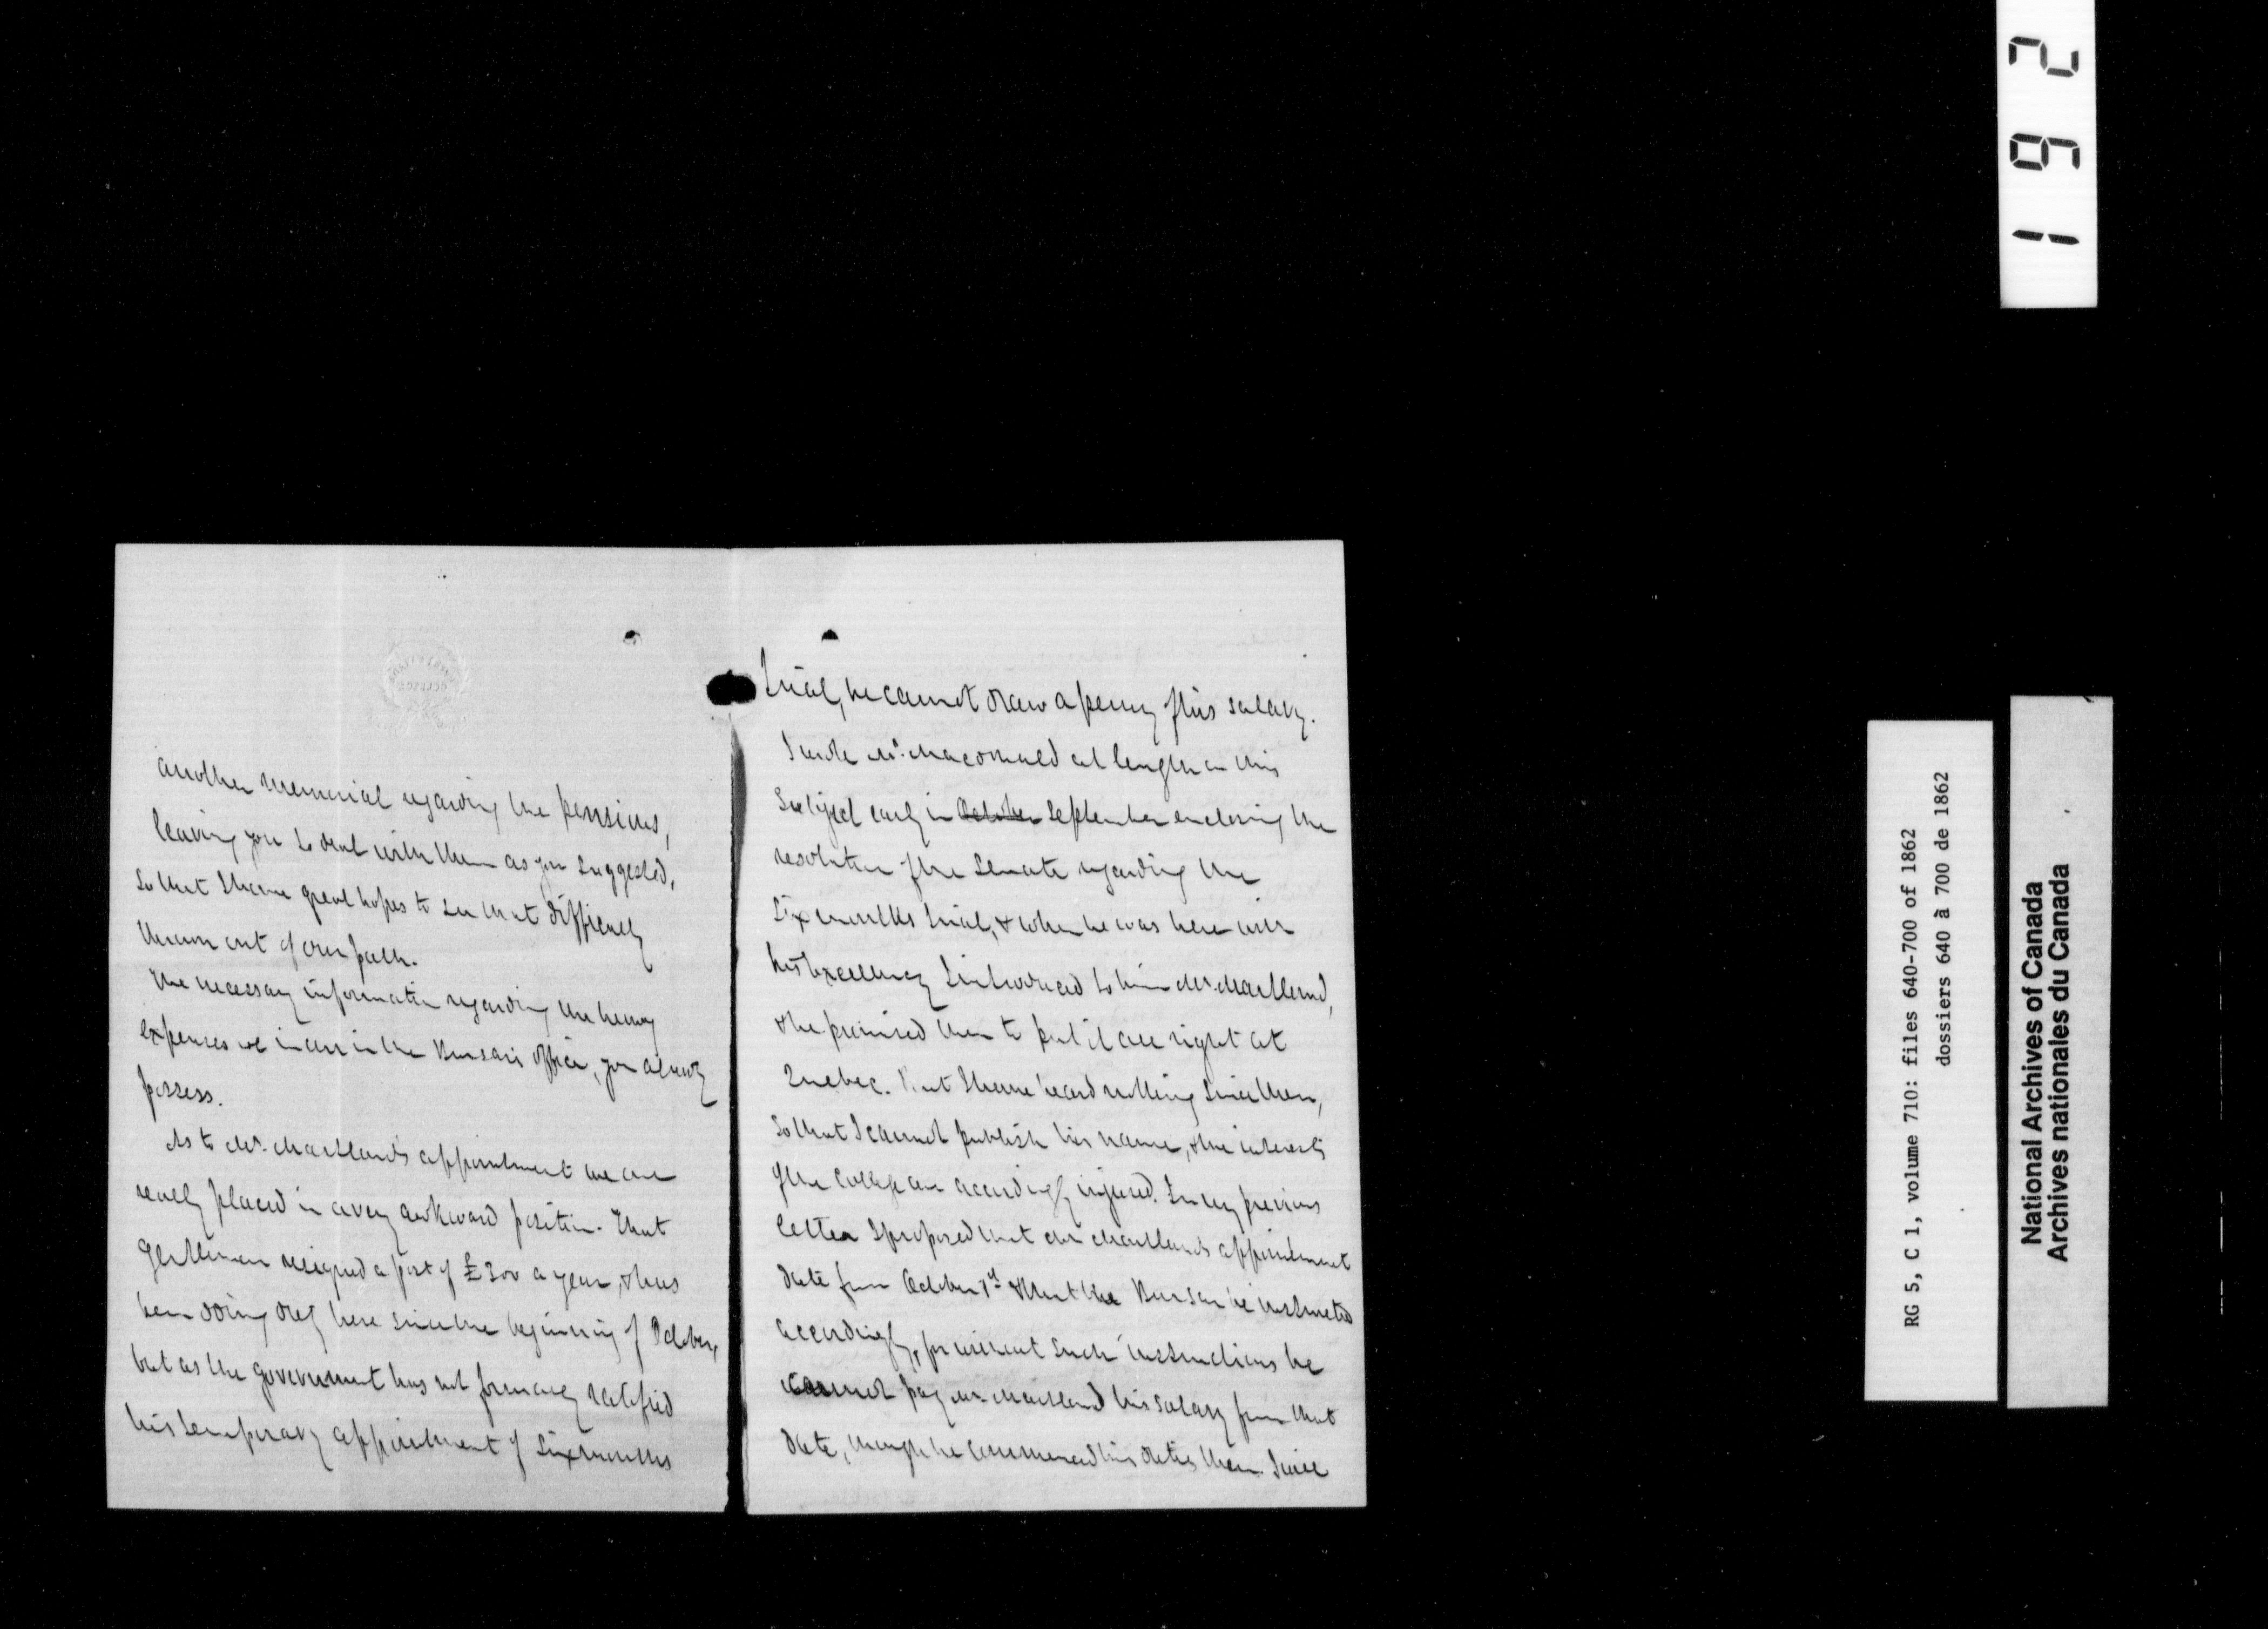 another memorial regarding the pensions,
leaving you to deal with them as you suggested,
so that I have great hopes to see that difficulty
thrown out of our path.
The necessary information regarding the heavy
expenses we incur in the Bursar's office, you already
possess.
As to Mr. Maitland's appointment we are
really placed in a very awkward position. That
gentleman resigned a post of £300 a year, & has
been doing duty here since the beginning of October,
but as the government has not formally ratified
his temporary appointment of six months
trial, he cannot draw a penny of his salary.
I wrote Mr. Macdonald at length on this
subject early in October September enclosing the
resolution of the Senate regarding the
six months trial, & when he was here with
his Excellency I introduced to him Mr. Maitland,
& he promised then to put it all right at
Quebec. But I have heard nothing since then,
so that I cannot publish his name, & the interests
of the College are accordingly injured. In my previous
letter I proposed that Mr Maitland's appointment
date from October 1st & that the Bursar be instructed
accordingly, for without such instructions he
cannot pay Mr. Maitland his salary from that
date, though he commenced his duties then. Since
192
RG 5, C 1, volume 710: files 640-700 of 1862
dossiers 640 à 700 de 1862
National Archives of Canada
Archives nationales du Canada